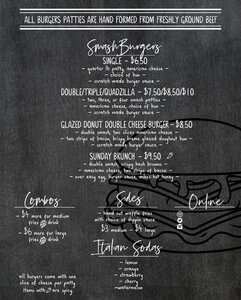 ALL BURGERS PATTIES ARE HAND FORMED FROM FRESHLY GROUND BEEF
SmashBurgers
SINGLE - $6.50
- quarter lb patty, american cheese -
- choice of bun -
- scratch made burger sauce -
DOUBLE/TRIPLE/QUADZILLA - $7.50/$8.50/$10
- two, three, or four smash patties -
- american cheese, choice of bun -
- scratch made burger sauce -
GLAZED DONUT DOUBLE CHEESE BURGER - $8.50
- double smash, two slices american cheese -
- two strips of bacon, krispy kreme glazed doughnut bun -
- scratch made burger sauce -
SUNDAY BRUNCH - $9.50
- double smash, crispy hash browns -
- american cheese, two strips of bacon -
- over easy egg, burger sauce, mikes hot honey -
Combos
- $4 more for medium
fries & drink
- $6 more for large
fries & drink
Sides
- hand cut waffle fries
with choice of dipping sauce
- medium - $3
- large - $5
Online
Italian Sodas
- lemon
- orange
- strawberry
- cherry
- watermelon
all burgers come with one
slice of cheese per patty
items with are spicy